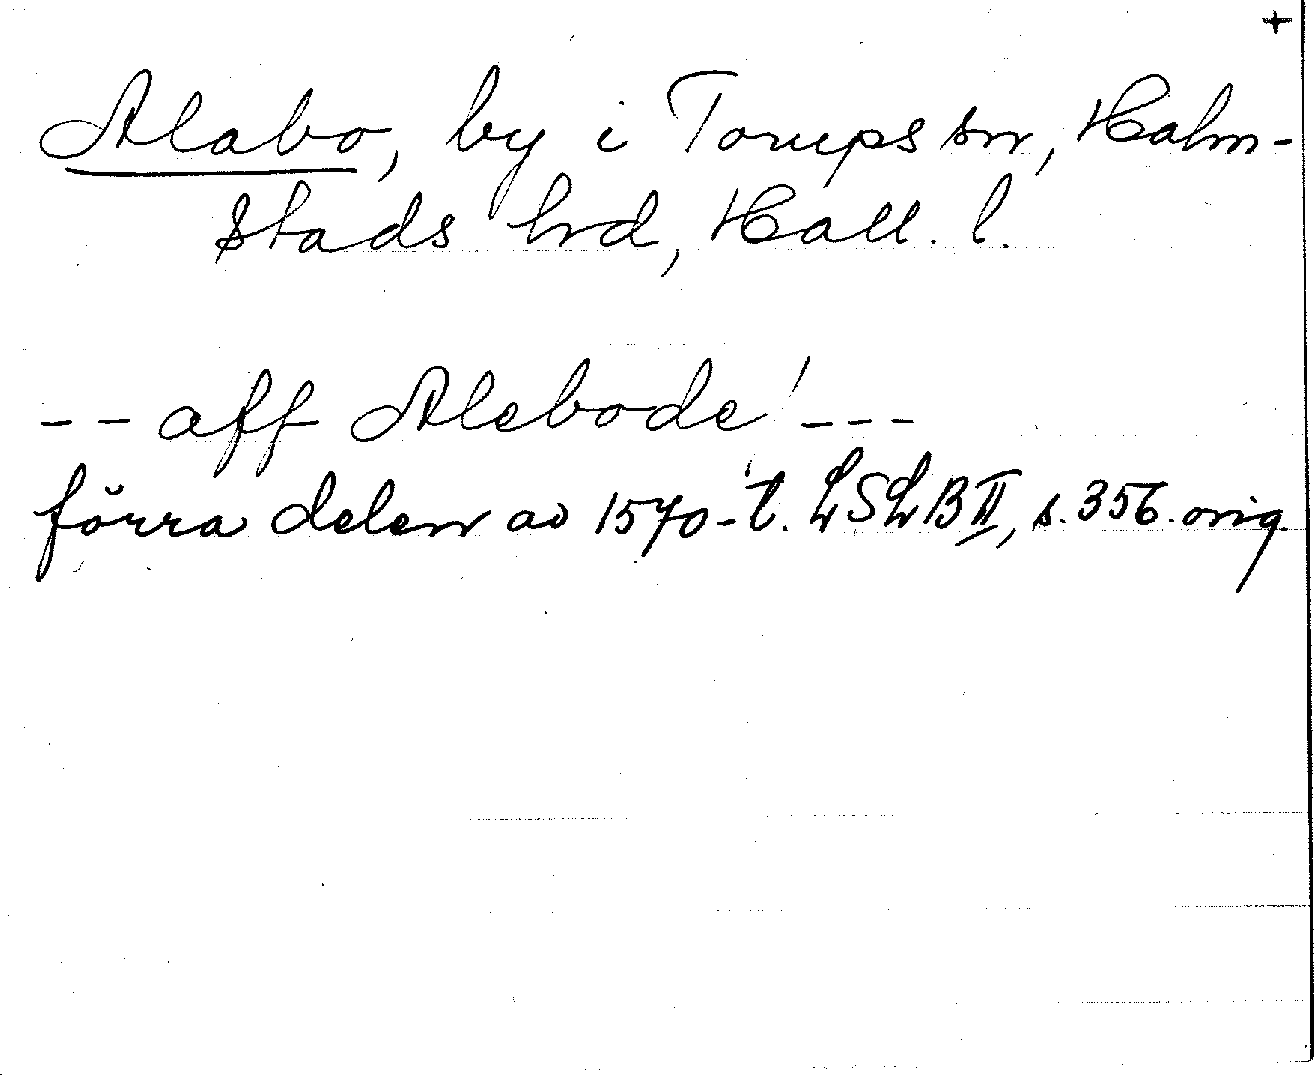 +
Alabo, by i Torups sn, Halm-
stads hrd, Hall. l.
-- aff Alebode! ---
förra delen av 1570-t. LSLB II, s. 356. orig.